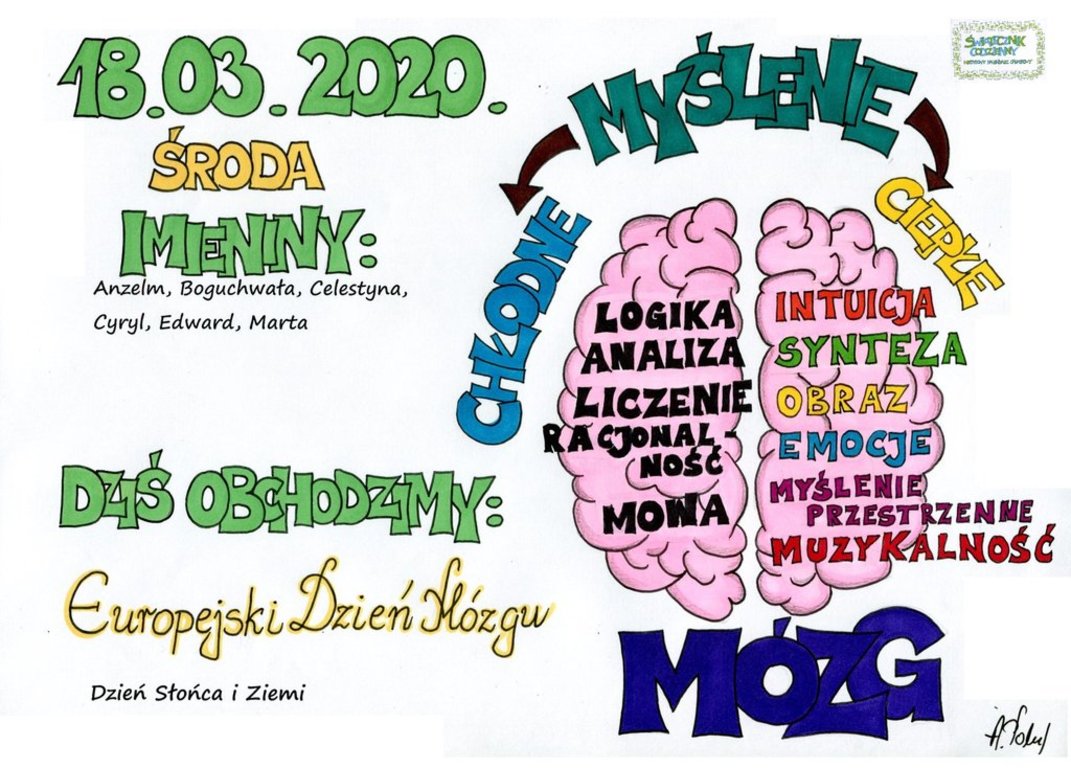 18.03.2020.
ŚRODA
IMIENINY:
Anzelm, Boguchwała, Celestyna,
Cyryl, Edward, Marta
DZIŚ OBCHODZIMY:
Europejski Dzień Mózgu
Dzień Słońca i Ziemi
ŚWIĄTECZNIK
CODZIENNY
MYŚLENIE
CHŁODNE
CIEPŁE
LOGIKA
ANALIZA
LICZENIE
RACJONAL-
NOŚĆ
MOWA
INTUICJA
SYNTEZA
OBRAZ
EMOCJE
MYŚLENIE
PRZESTRZENNE
MUZYKALNOŚĆ
MÓZG